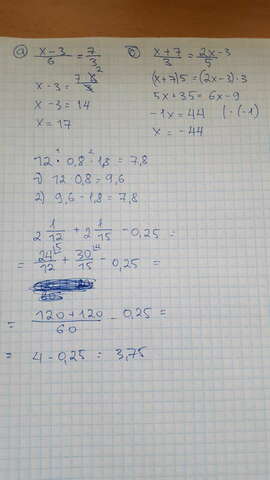 а) x-3/6 = 7/3
x-3 = 7·6²/3
x-3 = 14
x = 17
б) x+7/3 = 2x-3/5
(x+7)5 = (2x-3)·3
5x+35 = 6x-9
-1x = 44 (·(-1)
x = -44
12 · 0,8 - 1,8 = 7,8
1) 12 · 0,8 = 9,6
2) 9,6 - 1,8 = 7,8
2 1/12 + 2 1/15 - 0,25 =
= 24/12 + 30/15 - 0,25 =
= 120+120/60 - 0,25 =
= 4 - 0,25 = 3,75